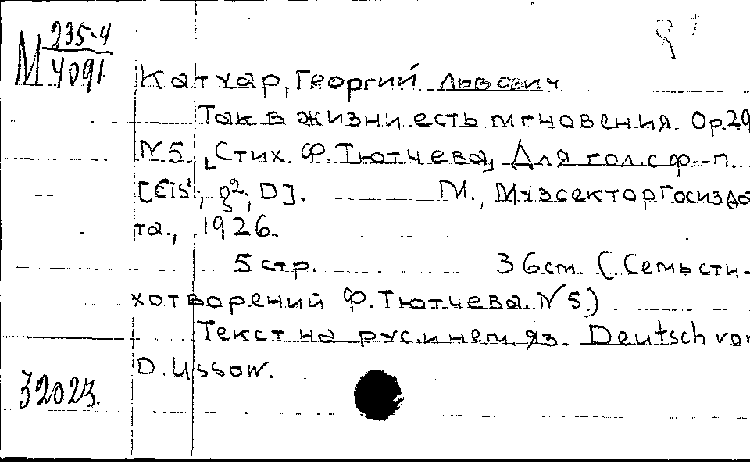 М 235-4
4091
Катуар, Георгий Львович
Так в жизни есть мгновения. Op.29
N5. [Стих. Ф.Тютчева] Для гол. с ф.-п.
[Eis¹, g², D]. М., Музсектор Госизда
та, 1926.
5 стр. 36 cm. (Семь сти-
хотворений Ф.Тютчева. N5)
Текст на рус. и нем. яз. Deutsch von
D. Ussow.
32023.